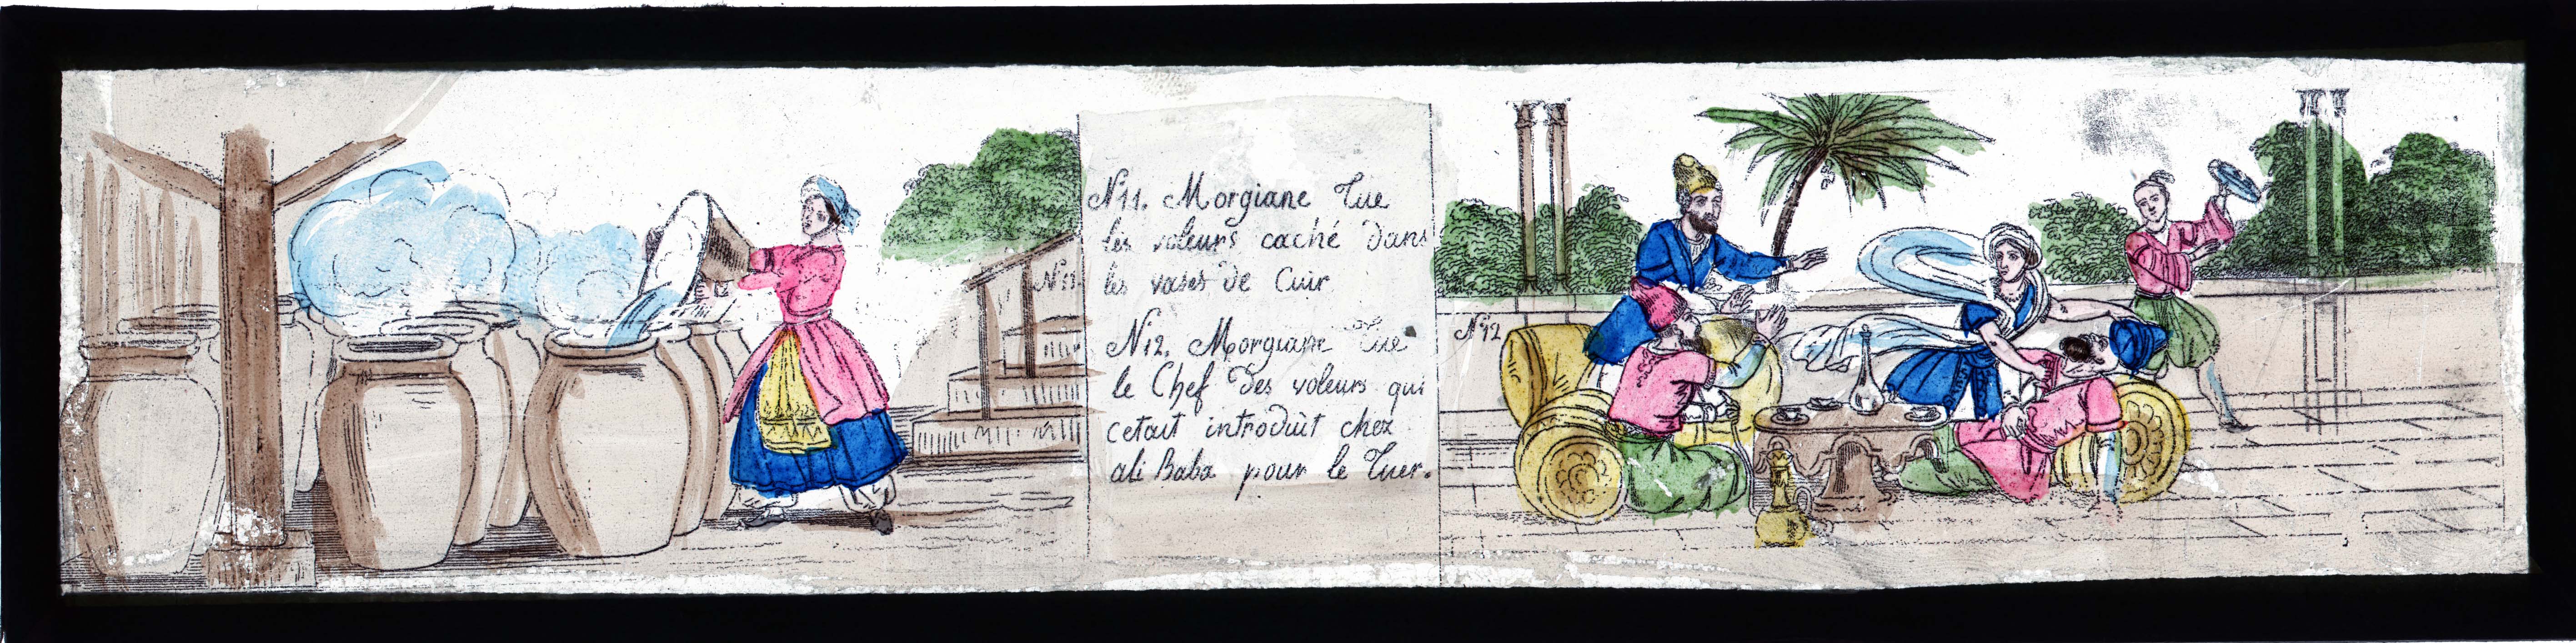 N 11. Morgiane Tue
les voleurs caché Dans
les vases de Cuir
N 12. Morgiane Tue
le Chef Des voleurs qui
cetait introduit chez
ali Baba pour le Tuer.
N 11
N 12